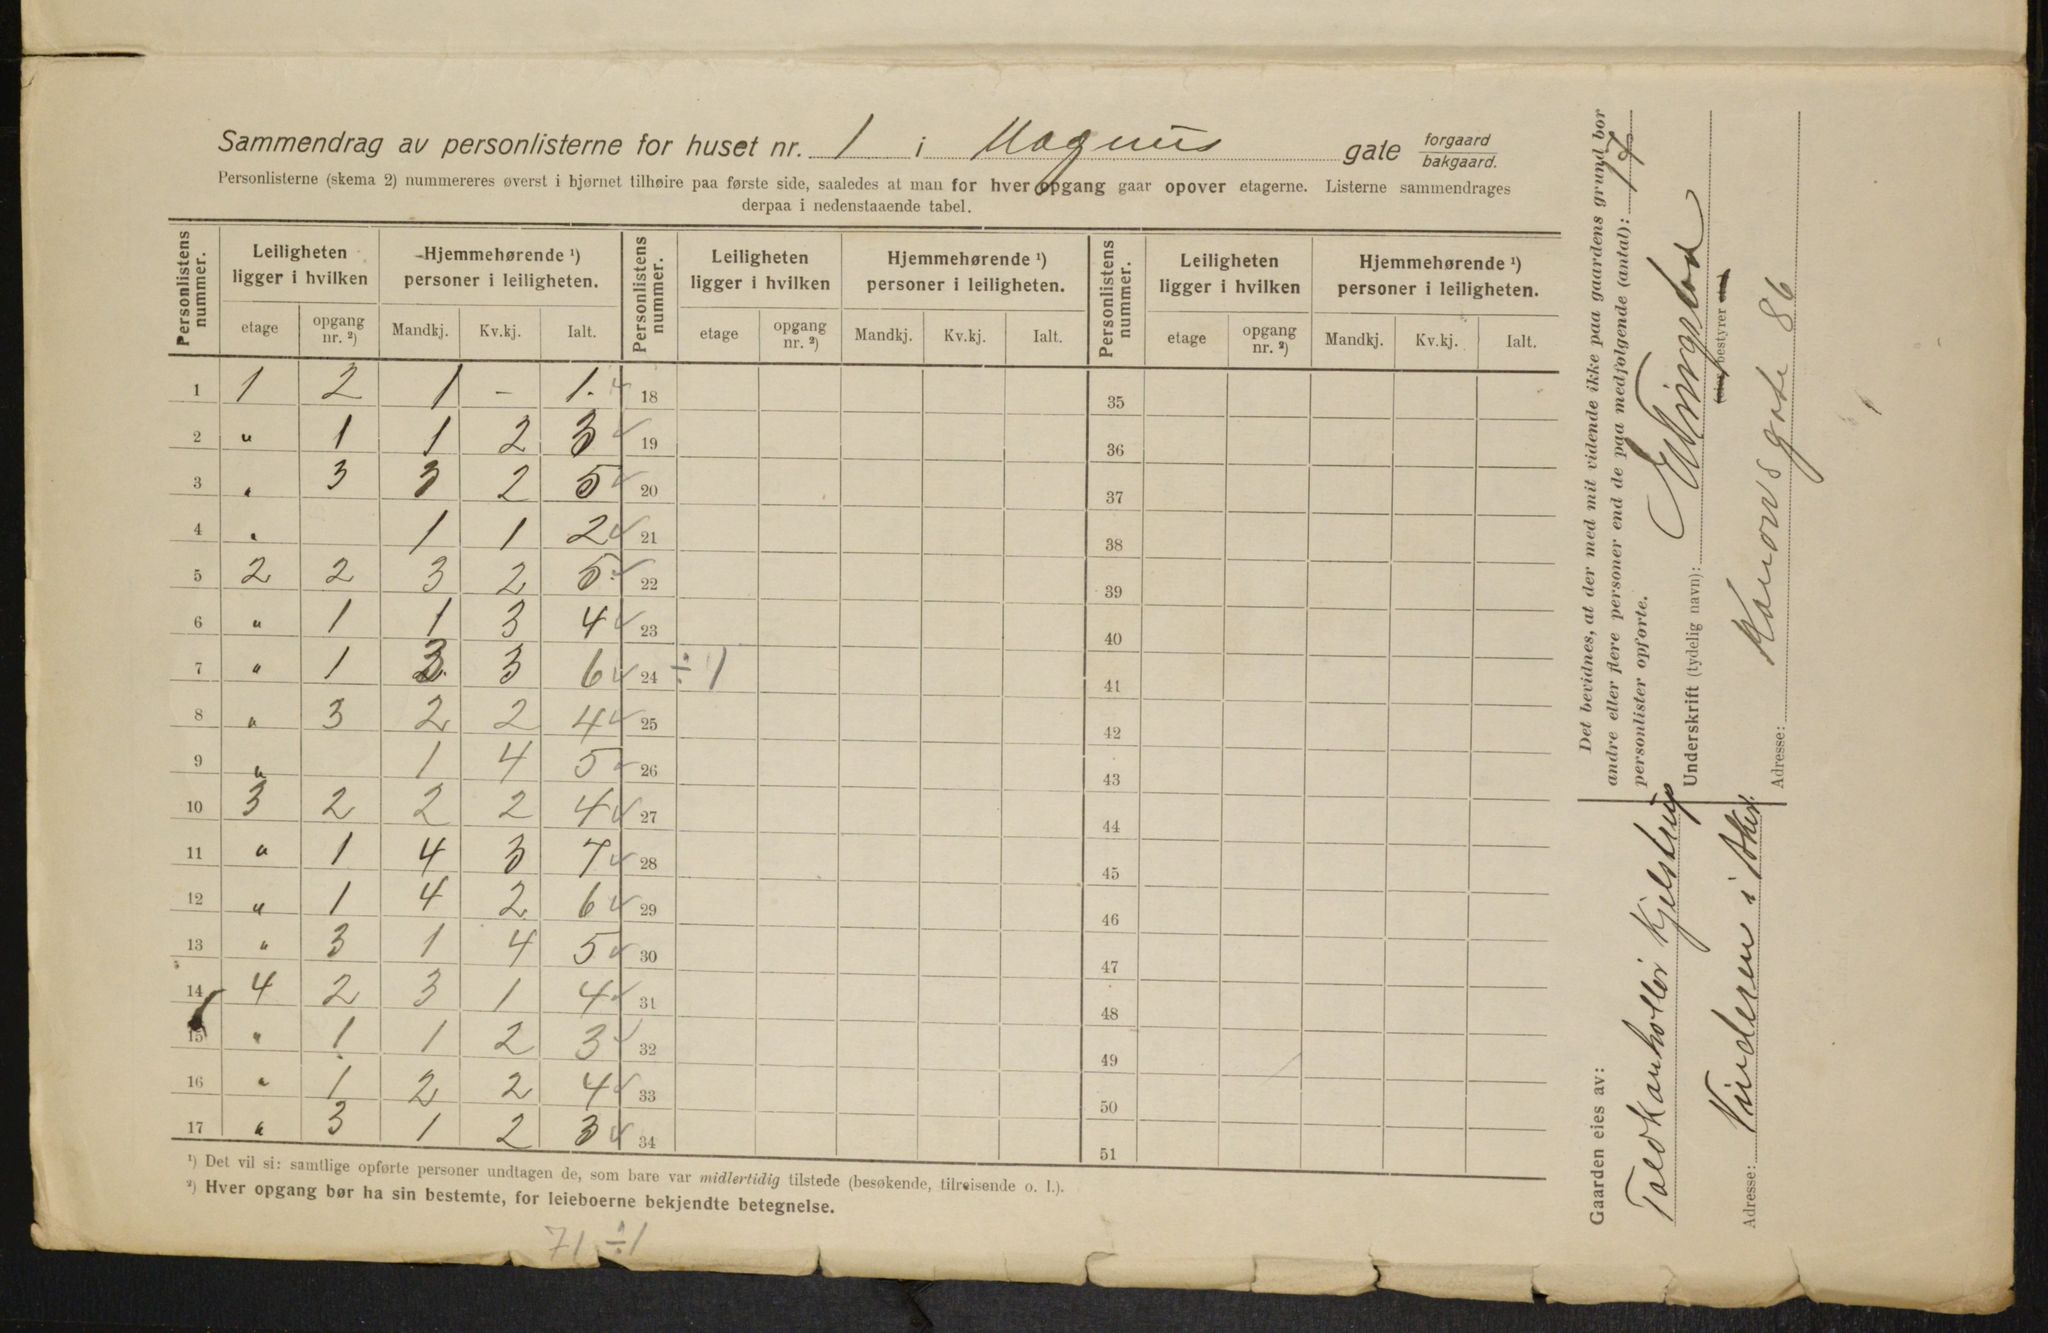 Sammendrag av personlisterne for huset nr. 1 i Magnus gate forgaard bakgaard.
Personlisterne (skema 2) nummereres øverst i hjørnet tilhøire paa første side, saaledes at man for hver opgang gaar opover etagerne. Listerne sammendrages
derpaa i nedenstaaende tabel.
Personlistens nummer. Leiligheten ligger i hvilken Hjemmehørende ¹) personer i leiligheten. Personlistens nummer. Leiligheten ligger i hvilken Hjemmehørende ¹) personer i leiligheten. Personlistens nummer. Leiligheten ligger i hvilken Hjemmehørende ¹) personer i leiligheten.
etage opgang nr. ²) Mandkj. Kv.kj. Ialt. etage opgang nr. ²) Mandkj. Kv.kj. Ialt. etage opgang nr. ²) Mandkj. Kv.kj. Ialt.
1 1 2 1 - 1. 18 35
2 " 1 1 2 3 19 36
3 " 3 3 2 5 20 37
4 " 1 1 2 21 38
5 2 2 3 2 5. 22 39
6 " 1 1 3 4 23 40
7 " 1 3 3 6 24 ÷ 1 41
8 " 3 2 2 4 25 42
9 " 1 4 5 26 43
10 3 2 2 2 4 27 44
11 " 1 4 3 7 28 45
12 " 1 4 2 6 29 46
13 " 3 1 4 5 30 47
14 4 2 3 1 4 31 48
15 " 1 1 2 3 32 49
16 " 1 2 2 4 33 50
17 " 3 1 2 3 34 51
¹) Det vil si: samtlige opførte personer undtagen de, som bare var midlertidig tilstede (besøkende, tilreisende o. l.).
²) Hver opgang bør ha sin bestemte, for leieboerne bekjendte betegnelse.
71 ÷ 1
Det bevidnes, at der med mit vidende ikke paa gaardens grund bor
andre eller flere personer end de paa medfølgende (antal): 17
personlister opførte.
Underskrift (tydelig navn):
(eier, bestyrer
Adresse: gate 86
Gaarden eies av:
Kjelstrup
Adresse: Vinderen i Aker.